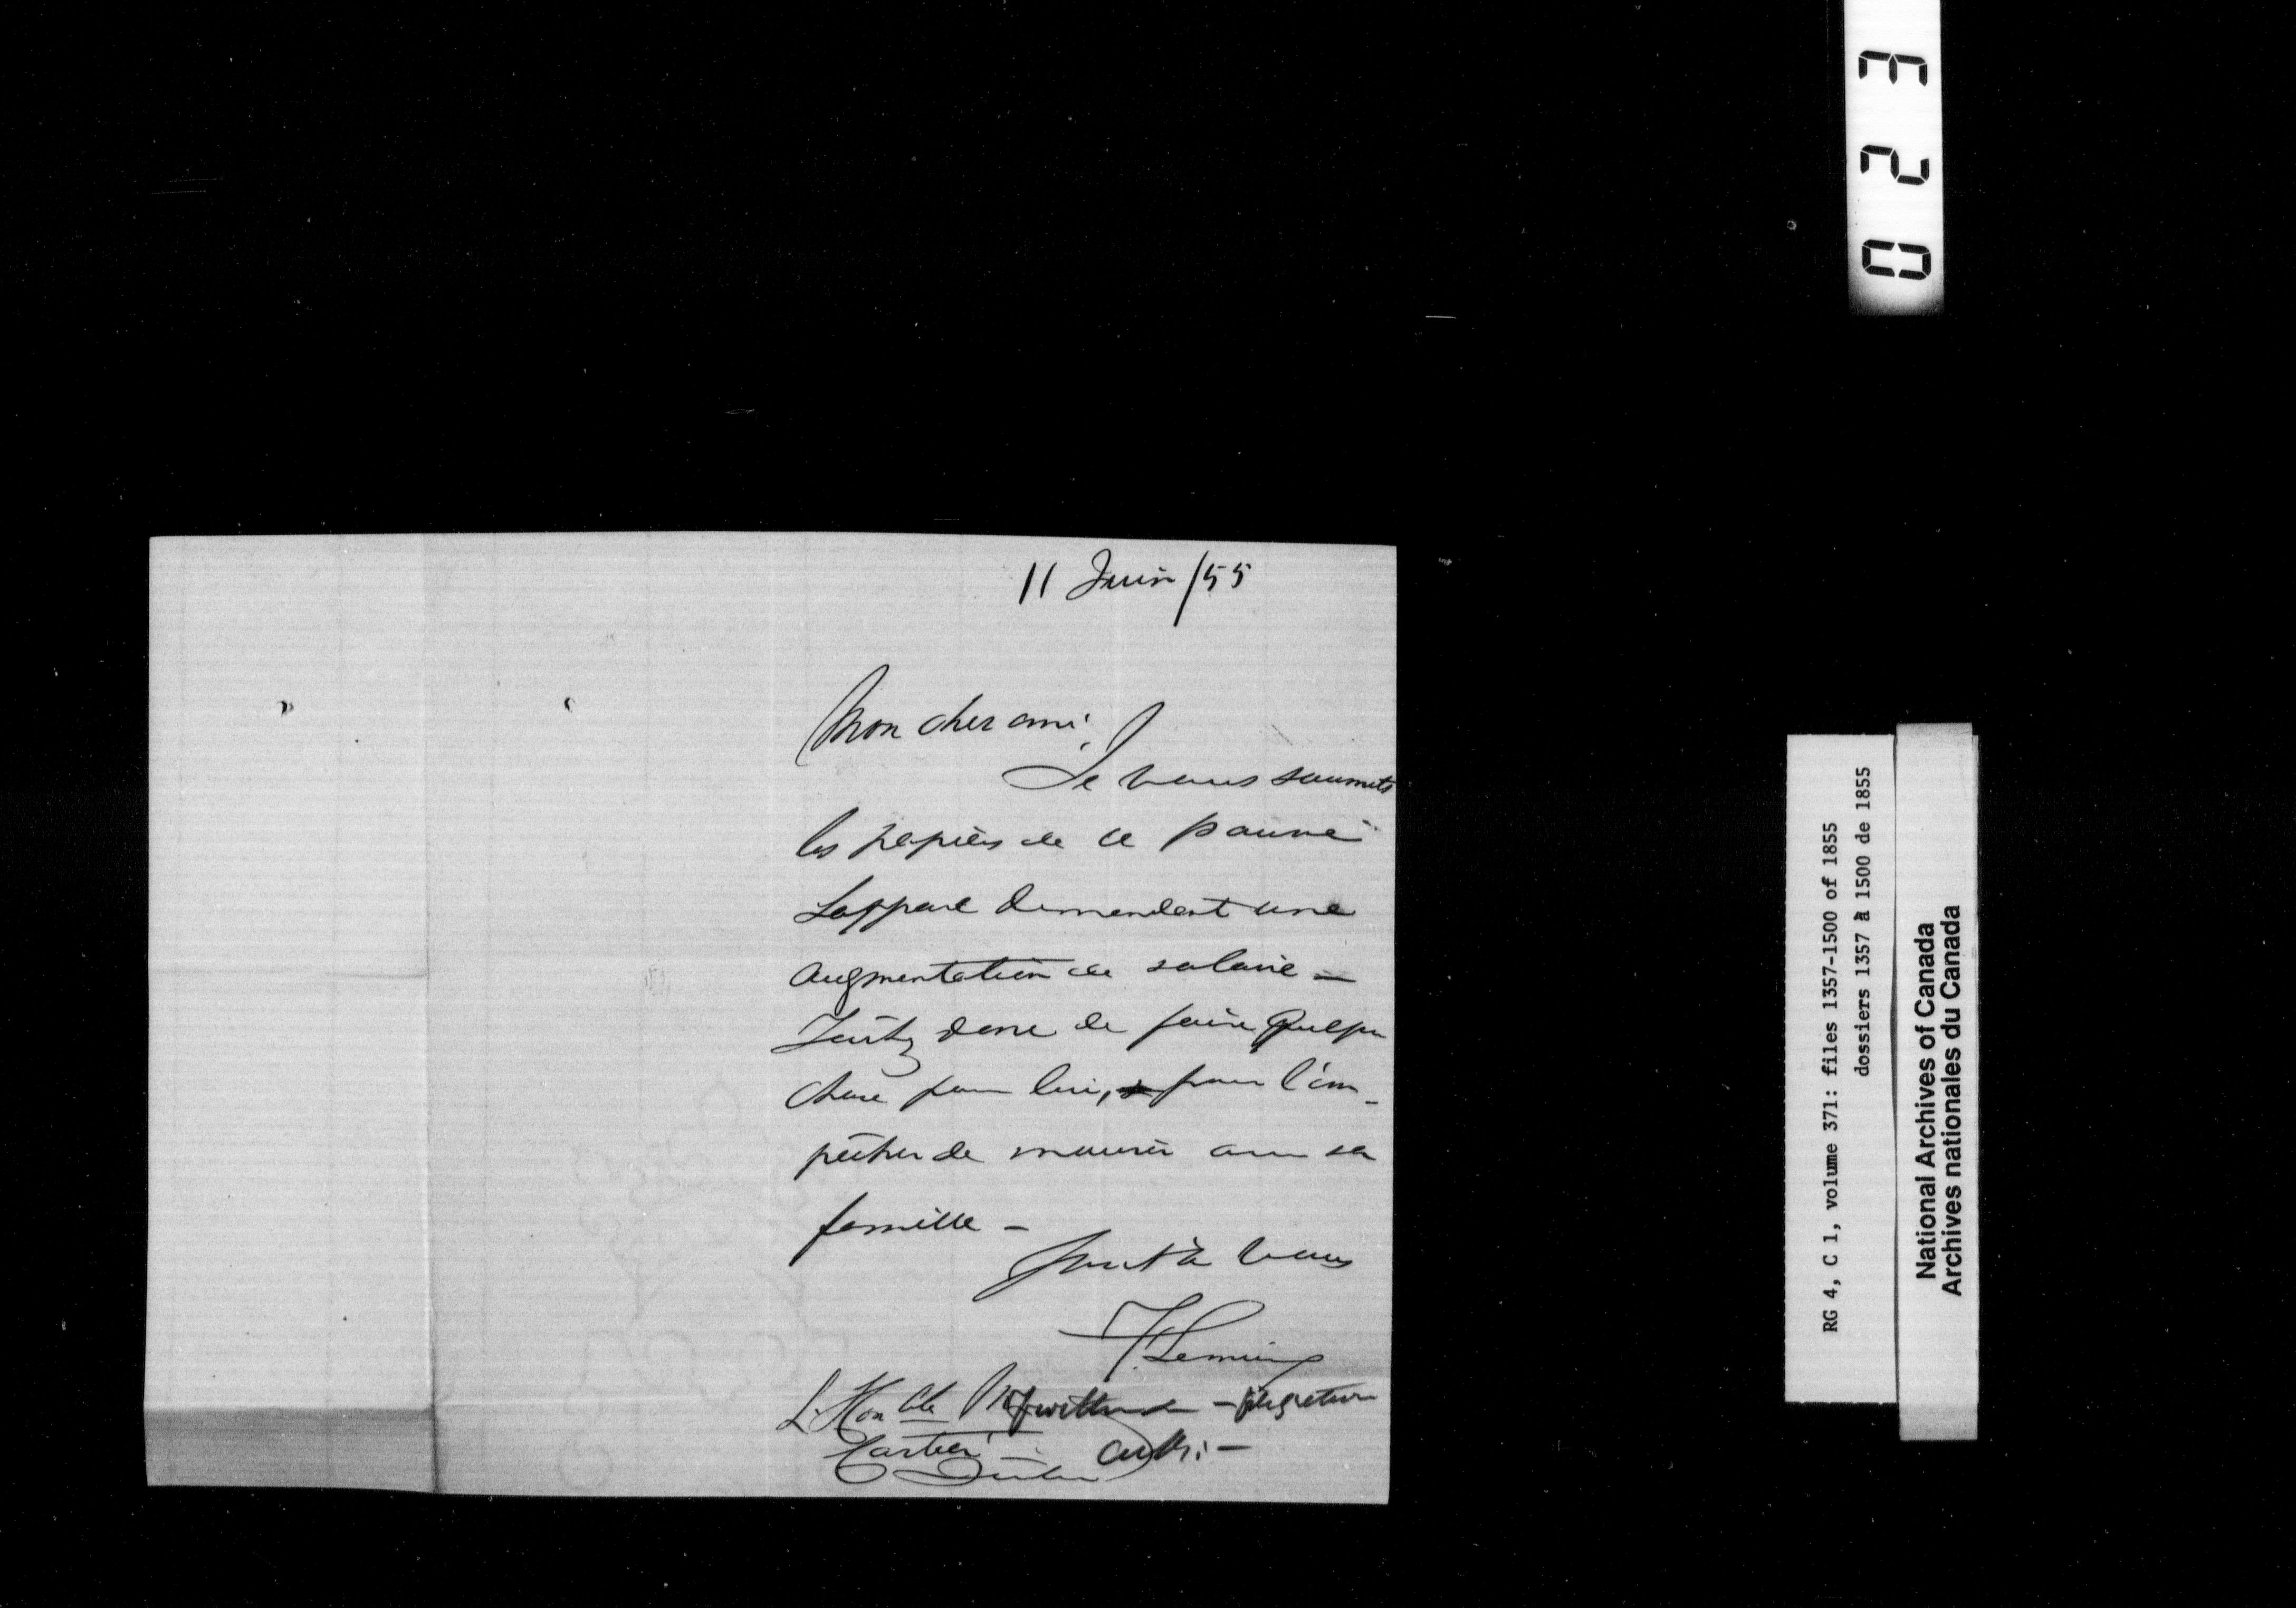 11 Juin /55
Mon cher ami,
Je vous soumets
les papiers de ce pauvre
demandant une
augmentation de salaire —
donc de faire quelque
chose pour lui, pour l'em-
pêcher de mourir avec sa
famille —
Tout à vous
L'Honble
Cartier
023
RG 4, C 1, volume 371: files 1357-1500 of 1855
dossiers 1357 à 1500 de 1855
National Archives of Canada
Archives nationales du Canada